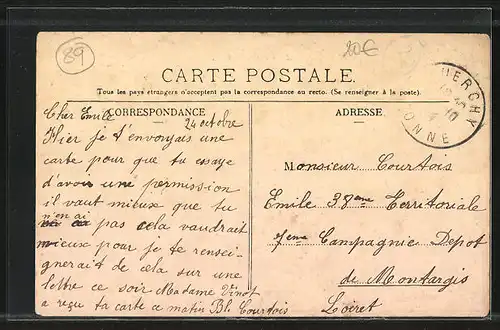 89
20€
CARTE POSTALE
Tous les pays étrangers n'acceptent pas la correspondance au recto. (Se renseigner à la poste).
CORRESPONDANCE
ADRESSE
Cher Emile
24 octobre
Hier je t'envoyais une
carte pour que tu essaye
d'avoir une permission
il vaut mieux que tu
n'en ai pas cela vaudrait
mieux pour je te rensei-
gnerait de cela sur une
lettre ce soir Madame Vinot
a reçu ta carte ce matin Bl. Courtois
Monsieur Courtois
Emile 38eme Territoriale
7eme Compagnie Depot
de Montargis
Loiret
MERCHY
YONNE